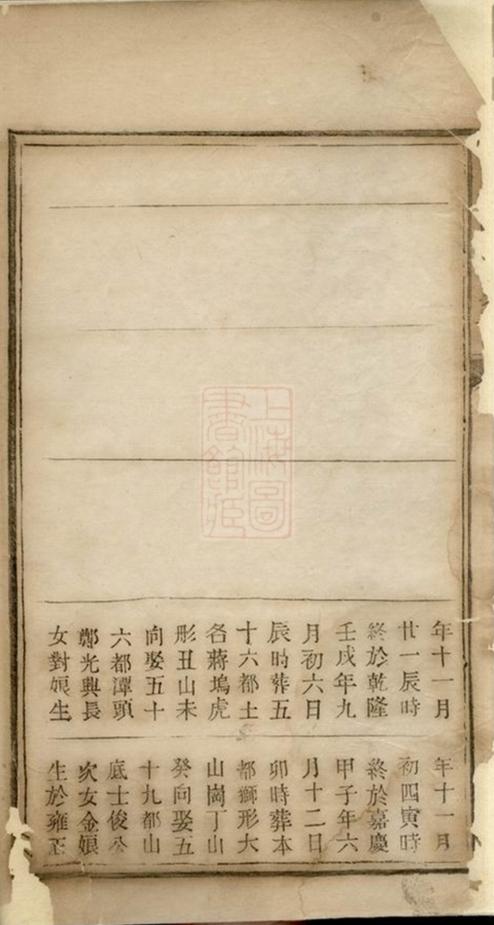 年十一月
廿一辰時
終於乾隆
壬戌年九
月初六日
辰時葬五
十六都土
名蔣塢虎
形丑山未
向娶五十
六都潭頭
鄭光興長
女對娘生
年十一月
初四寅時
終於嘉慶
甲子年六
月十二日
卯時葬本
都獅形大
山崗丁山
癸向娶五
十九都山
底士俊公
次女金娘
生於雍正
上海圖
書館藏